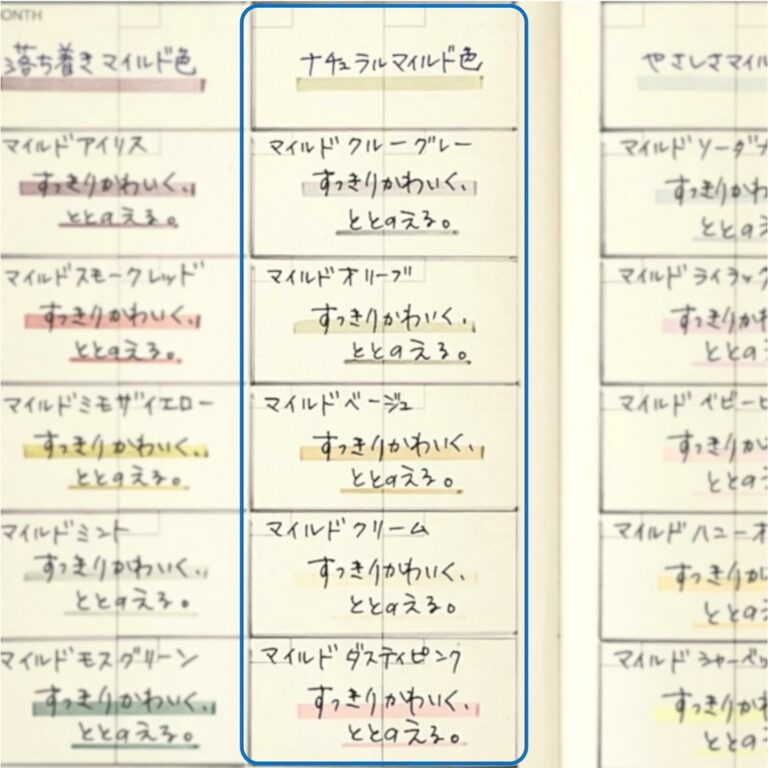 ONTH
落ち着きマイルド色
マイルドアイリス
すっきりかわいく、
ととのえる。
マイルドスモークレッド
すっきりかわいく、
ととのえる。
マイルドミモザイエロー
すっきりかわいく、
ととのえる。
マイルドミント
すっきりかわいく、
ととのえる。
マイルドモスグリーン
すっきりかわいく、
ととのえる。
ナチュラルマイルド色
マイルドクールグレー
すっきりかわいく、
ととのえる。
マイルドオリーブ
すっきりかわいく、
ととのえる。
マイルドベージュ
すっきりかわいく、
ととのえる。
マイルドクリーム
すっきりかわいく、
ととのえる。
マイルドダスティピンク
すっきりかわいく、
ととのえる。
やさしさマイル
マイルドソーダ
すっきりか
ととのえ
マイルドライラック
すっきりか
ととのえ
マイルドベビー
すっきりか
ととのえ
マイルドハニーオ
すっきりか
ととのえ
マイルドシャーベッ
すっきりか
ととのえ